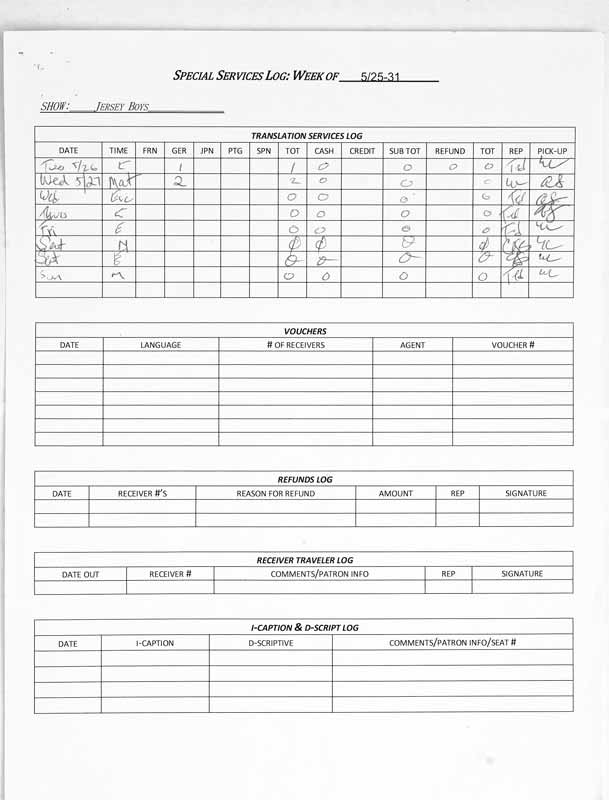 SPECIAL SERVICES LOG: WEEK OF 5/25-31
SHOW: JERSEY BOYS
TRANSLATION SERVICES LOG
DATE TIME FRN GER JPN PTG SPN TOT CASH CREDIT SUB TOT REFUND TOT REP PICK-UP
Tue 5/26 E 1 1 0 0 0 0 Ted
Wed 5/27 Mat 2 2 0 0 0
Wed Eve 0 0 0 0 Ted
Thurs E 0 0 0 0 Ted
Fri E 0 0 0 0 Ted
Sat M 0 0 0 0
Sat E 0 0 0 0
Sun M 0 0 0 0 Ted
VOUCHERS
DATE LANGUAGE # OF RECEIVERS AGENT VOUCHER #
REFUNDS LOG
DATE RECEIVER #'S REASON FOR REFUND AMOUNT REP SIGNATURE
RECEIVER TRAVELER LOG
DATE OUT RECEIVER # COMMENTS/PATRON INFO REP SIGNATURE
I-CAPTION & D-SCRIPT LOG
DATE I-CAPTION D-SCRIPTIVE COMMENTS/PATRON INFO/SEAT #